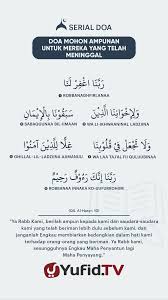 SERIAL DOA
DOA MOHON AMPUNAN
UNTUK MEREKA YANG TELAH
MENINGGAL
رَبَّنَا اغْفِرْ لَنَا
ROBBANAGHFIRLANAA
وَلِإِخْوَانِنَا الَّذِينَ
سَبَقُونَا بِالْإِيمَانِ
WA LI IKHWANINNAL LADZIINA
SABAQUUNAA BIL-IIMAAN
وَلَا تَجْعَلْ فِي قُلُوبِنَا
غِلًّا لِلَّذِينَ آمَنُوا
WA LAA TAJ'AL FII QULUUBINAA
GHILLAL-LIL-LADZIINA AAMANUU
رَبَّنَا إِنَّكَ رَءُوفٌ رَحِيمٌ
ROBBANAA INNAKA RO-UUFURROHIIM
(QS. Al-Hasyr: 10)
"Ya Rabb Kami, berilah ampun kepada kami dan saudara-saudara
kami yang telah beriman lebih dulu sebelum kami, dan
janganlah Engkau membiarkan kedengkian dalam hati kami
terhadap orang-orang yang beriman. Ya Rabb kami,
sesungguhnya Engkau Maha Penyantun lagi
Maha Penyayang."
YUFID.TV